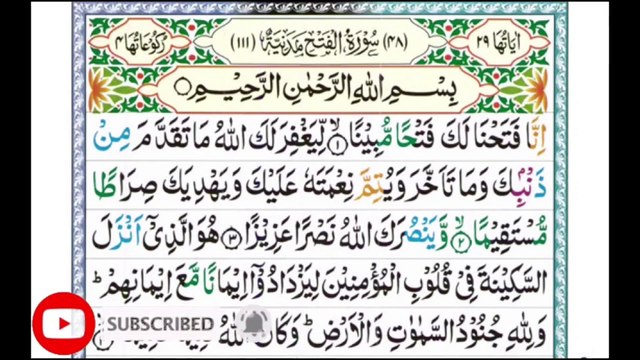 اٰيَاتُهَا ٢٩ (٤٨) سُوْرَةُ الْفَتْحِ مَدَنِيَّةٌ (١١١) رُكُوْعَاتُهَا ٤
بِسْمِ اللهِ الرَّحْمٰنِ الرَّحِيْمِ
اِنَّا فَتَحْنَا لَكَ فَتْحًا مُّبِيْنًا ۙ﴿١﴾ لِّيَغْفِرَ لَكَ اللهُ مَا تَقَدَّمَ مِنْ
ذَنْۢبِكَ وَمَا تَاَخَّرَ وَيُتِمَّ نِعْمَتَهٗ عَلَيْكَ وَيَهْدِيَكَ صِرَاطًا
مُّسْتَقِيْمًا ۙ﴿٢﴾ وَّيَنْصُرَكَ اللهُ نَصْرًا عَزِيْزًا ﴿٣﴾ هُوَ الَّذِيْۤ اَنْزَلَ
السَّكِيْنَةَ فِيْ قُلُوْبِ الْمُؤْمِنِيْنَ لِيَزْدَادُوْۤا اِيْمَانًا مَّعَ اِيْمَانِهِمْ ؕ
وَلِلّٰهِ جُنُوْدُ السَّمٰوٰتِ وَالْاَرْضِ ؕ وَكَانَ اللهُ
SUBSCRIBED